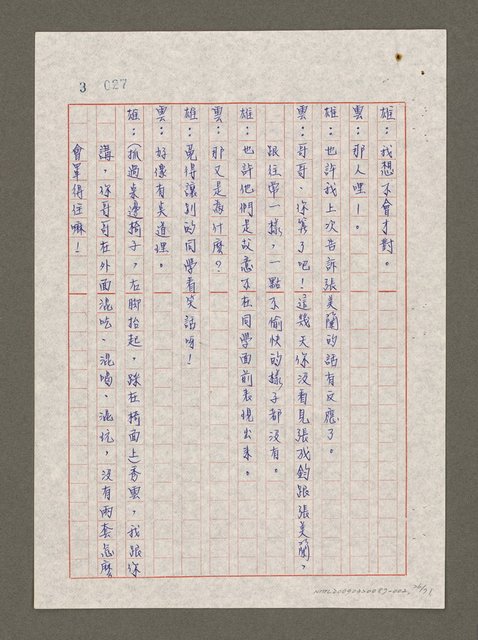 3 027
雄：我想不會才對。
雲：那人哩！。
雄：也許我上次告訴張美蘭的話有反應了。
雲：哥哥，你算了吧！這幾天你沒看見張成鈞跟張美蘭，
跟往常一樣，一點不愉快的樣子都沒有。
雄：也許他們是故意不在同學面前表現出來。
雲：那又是為什麼？
雄：免得讓別的同學看笑話呀！
雲：好像有矣道理。
雄：(抓過桌邊椅子，右腳抬起，踩在椅面上)秀雲，我跟你
講，你哥哥在外面混吃、混喝、混玩，沒有兩套怎麼
會罩得住嘛！
NML20090220087-002